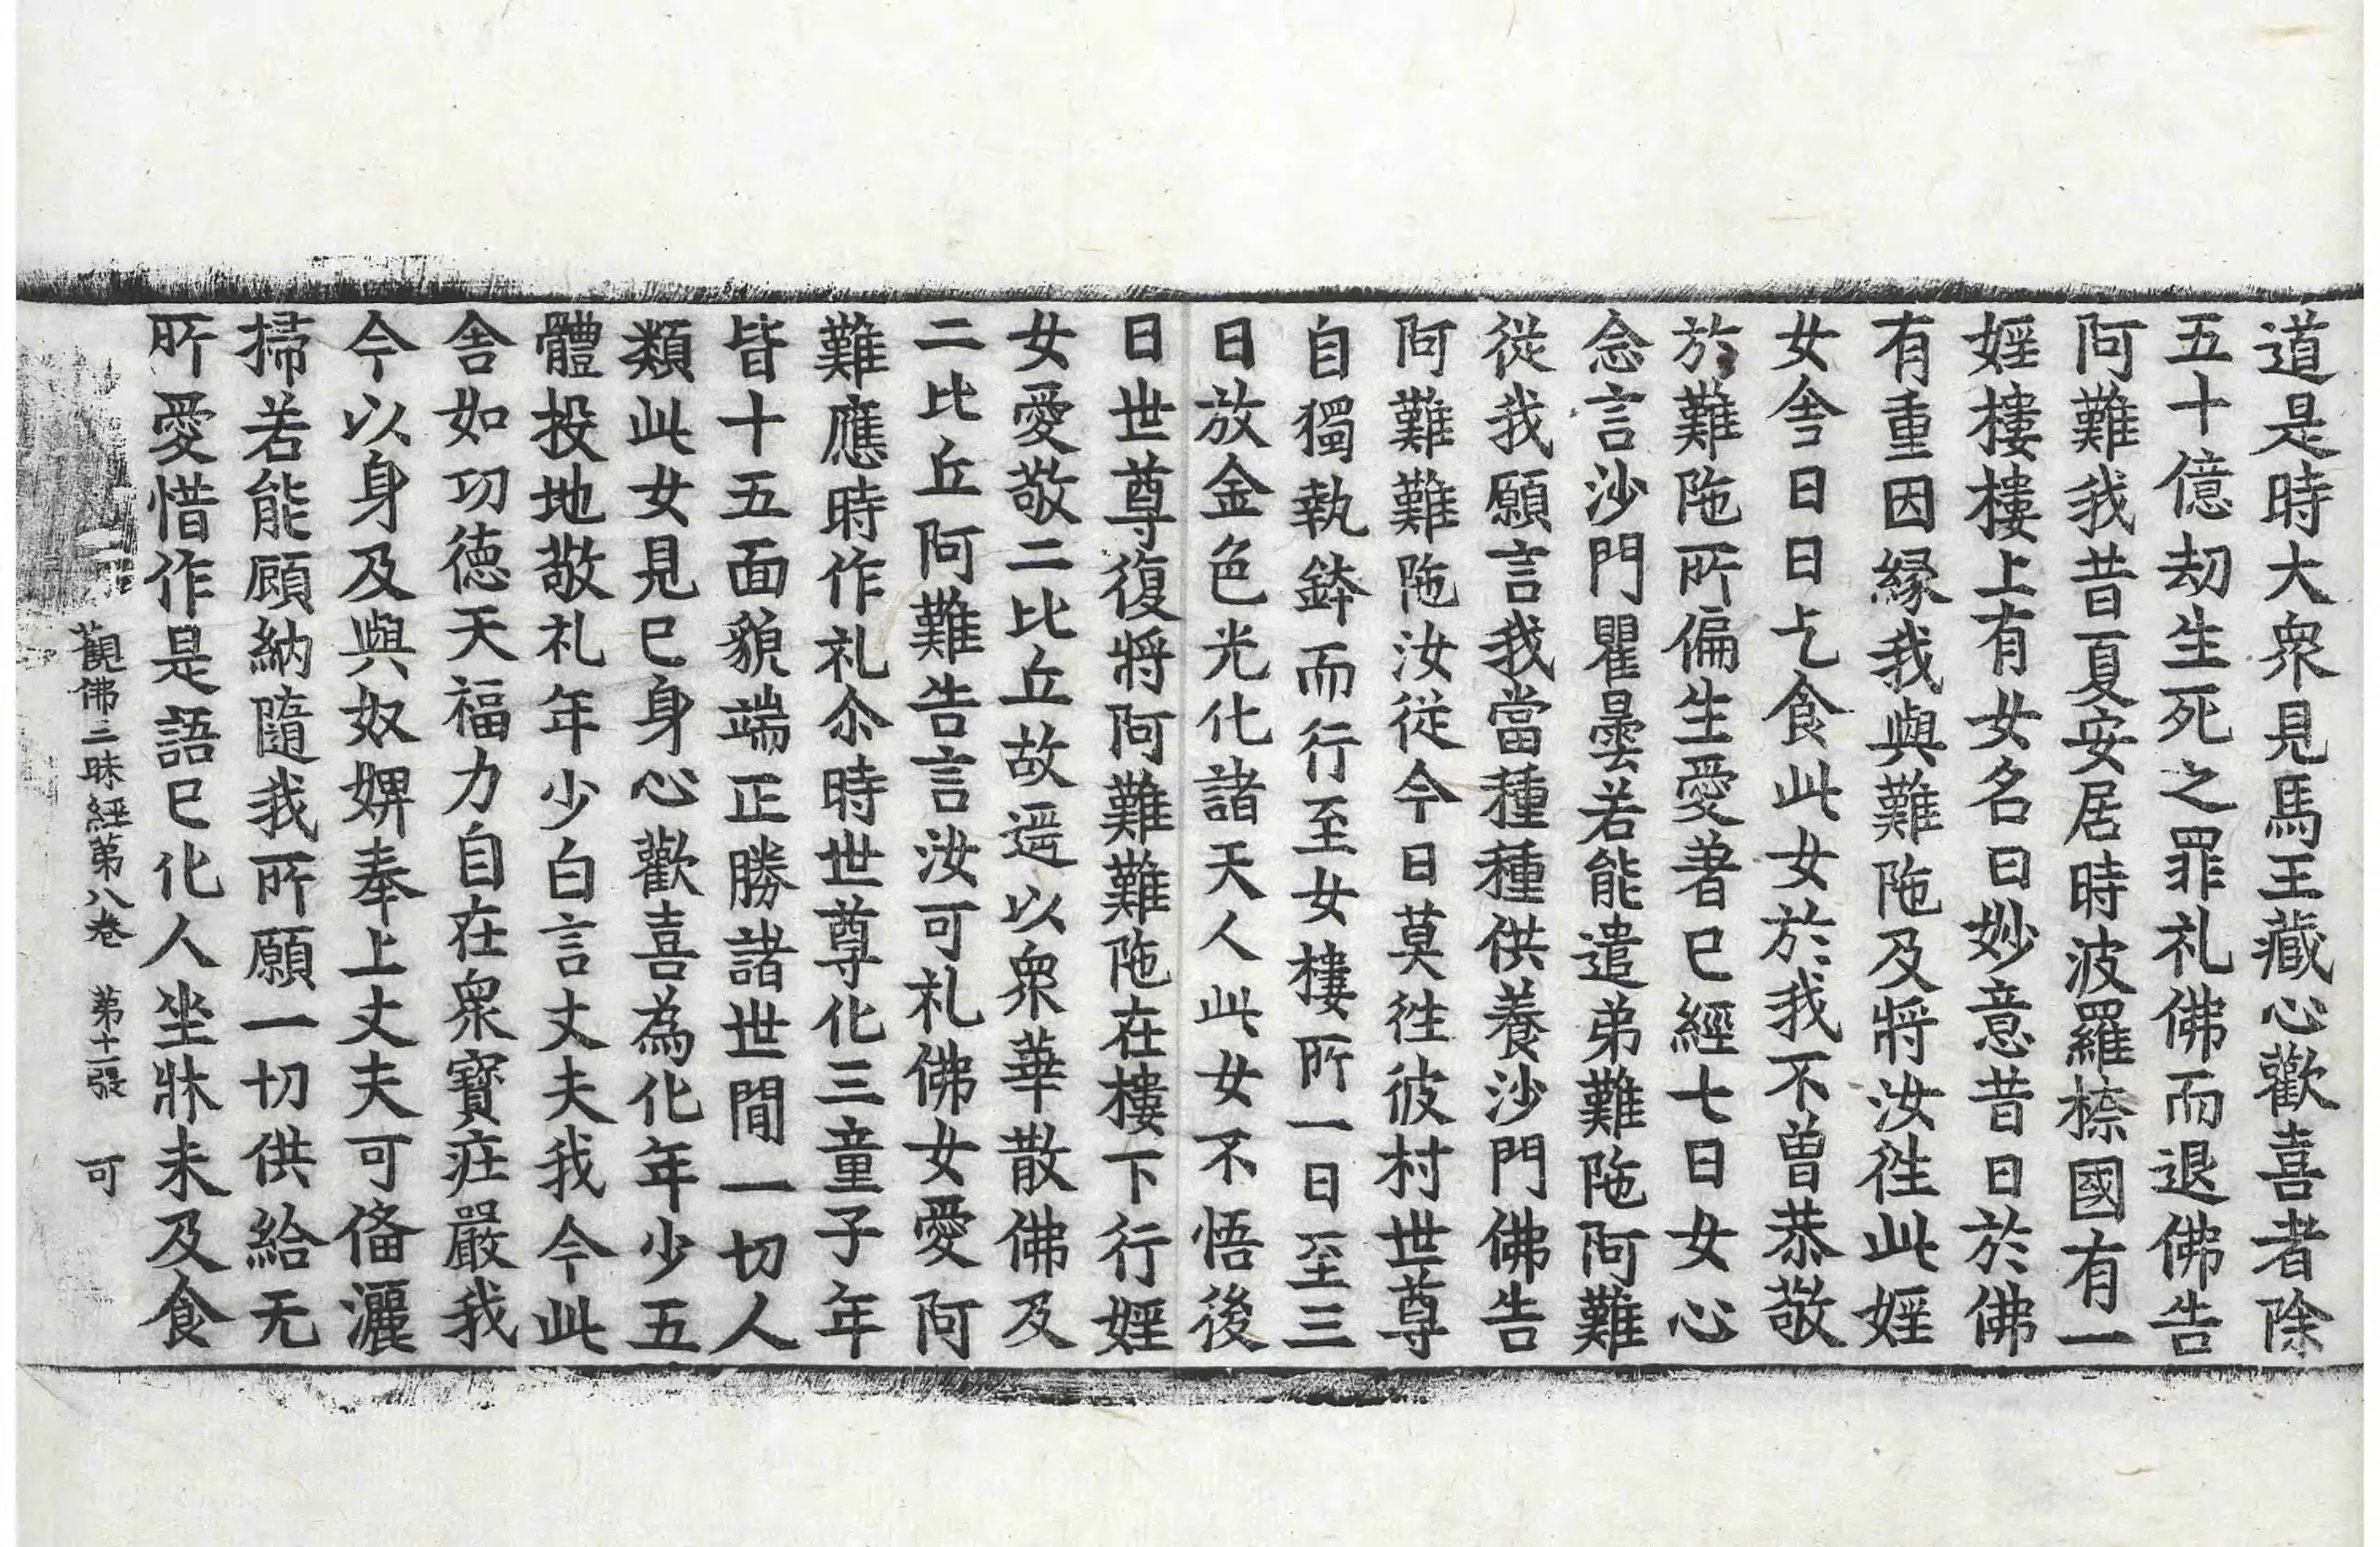 道是時大衆見馬王藏心歡喜者除
五十億劫生死之罪礼佛而退佛告
阿難我昔夏安居時波羅㮈國有一
婬樓樓上有女名曰妙意昔日於佛
有重因緣我與難陁及將汝往此婬
女舍日日乞食此女於我不曾恭敬
於難陁所偏生愛著已經七日女心
念言沙門瞿曇若能遣弟難陁阿難
從我願言我當種種供養沙門佛告
阿難難陁汝從今日莫往彼村世尊
自獨執鉢而行至女樓所一日至三
日放金色光化諸天人此女不悟後
日世尊復將阿難難陁在樓下行婬
女愛敬二比丘故遥以衆華散佛及
二比丘阿難告言汝可礼佛女愛阿
難應時作礼尒時世尊化三童子年
皆十五面貌端正勝諸世間一切人
類此女見已身心歡喜為化年少五
體投地敬礼年少白言丈夫我今此
舍如功德天福力自在衆寶庄嚴我
今以身及與奴婢奉上丈夫可俻灑
掃若能顧納隨我所願一切供給无
所愛惜作是語已化人坐牀未及食
觀佛三昧經第八卷 第十一張 可